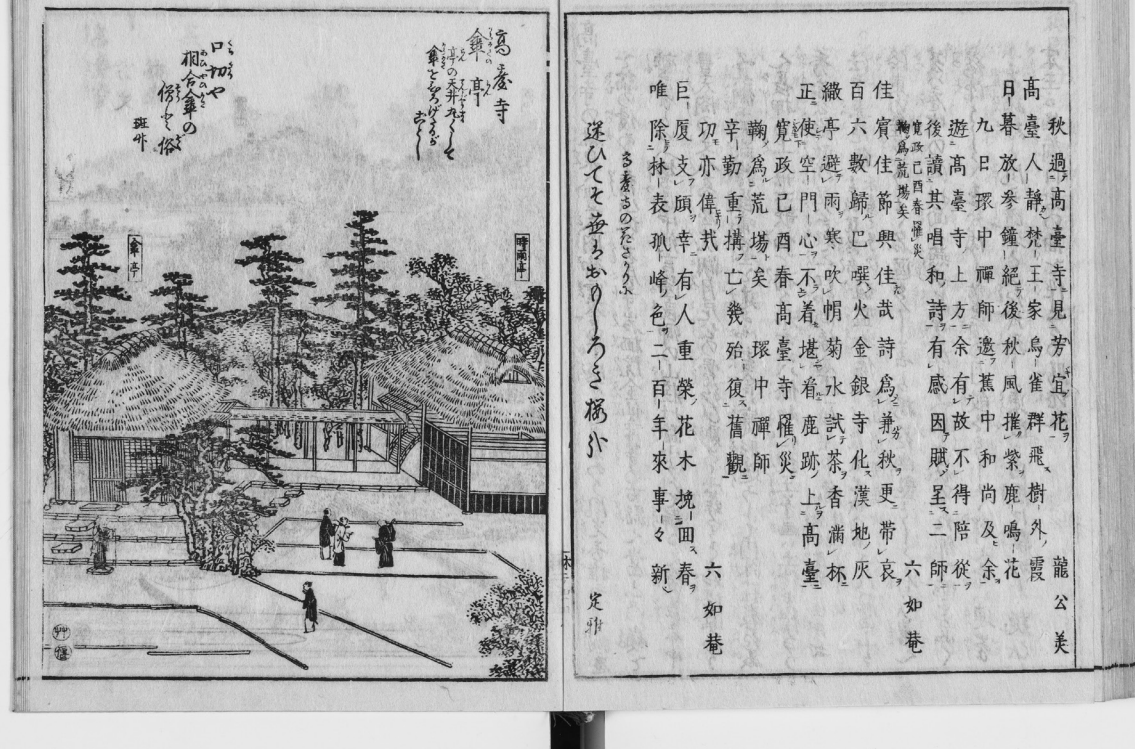 秋過高臺寺見芳宜花 龍公美
高臺人靜梵王家烏雀群飛樹外霞
日暮放參鐘絕後秋風摧紫鹿鳴花
九日環中禪師邀蕉中和尚及余
遊高臺寺上方余有故不得陪從
後讀其唱和詩有感因賦呈二師
寬政己酉春罹災
鞠為荒場矣
六如菴
佳賓佳節興佳哉詩為兼秋更帶哀
百六數歸巴噀火金銀寺化漢地灰
繖亭避雨寒吹帽菊水試茶香滿杯
正使空門心不着堪看鹿跡上高臺
寬政己酉春高臺寺罹災
鞠為荒場矣環中禪師
辛勤重搆亡幾殆復舊觀
功亦偉哉 六如菴
巨厦支頤幸有人重榮花木挽回春
唯除林表孤峰色二百年來事々新
高臺寺の花さかりに
迷ひてそ
おもしろき桜
定雅
高臺寺
傘亭
亭の天井丸くして
傘をひろげるがごとし
口切や
相合傘の
僧と俗
時雨亭
傘亭